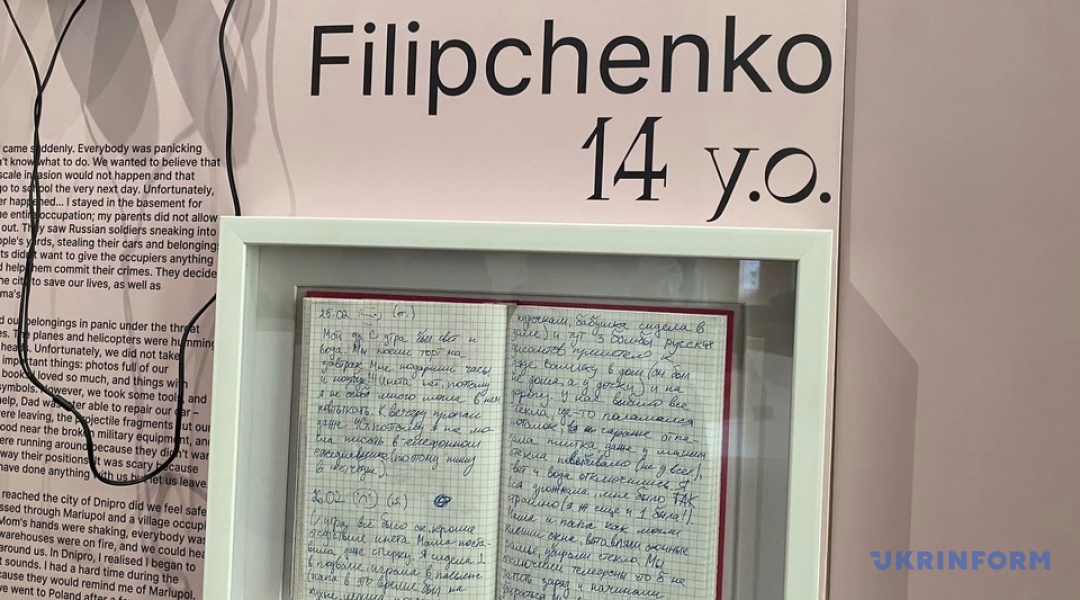 Filipchenko
14 y.o.
came suddenly. Everybody was panicking
't know what to do. We wanted to believe that
scale invasion would not happen and that
go to school the very next day. Unfortunately,
er happened... I stayed in the basement for
e entire occupation; my parents did not allow
out. They saw Russian soldiers sneaking into
ple's yards, stealing their cars and belongings
ts didn't want to give the occupiers anything
d help them commit their crimes. They decide
he city to save our lives, as well as
ma's
d our belongings in panic under the threat
es. The planes and helicopters were humming
heads. Unfortunately, we did not take
important things: photos full of our
books I loved so much, and things with
symbols. However, we took some tools, and
help, Dad was later able to repair our car –
ere leaving, the projectile fragments cut our
ood near the broken military equipment, and
ere running around because they didn't wan
way their positions. It was scary because
have done anything with us but let us leave
reached the city of Dnipro did we feel safe
ssed through Mariupol and a village occupi
Mom's hands were shaking, everybody was
warehouses were on fire, and we could hea
around us. In Dnipro, I realised I began to
t sounds. I had a hard time during the
cause they would remind me of Mariupol.
we went to Poland after a
25.02
Мой др. С утра был свет и
вода. Мы поели торт на
завтрак. Мне подарили часы
и
я не много могла
К вечеру пропал
даже
писать в телефонном
ежедневнике (поэтому пишу
в
26.02
С утра все было ок, кроме
отсутствие инета. Мама поста-
вила даже стирку. Я сидела
в подвале, играла в пасьянс
(папа в это время был на
кухне,
бабушка сидела в
зале) и тут 3 бомбы русских
дом (он был
не дома, а у
и на
дорогу. У нас выбило все
стекла, где-то поломался
потолок, в гараже отпа-
ла плитка даже у машин
стекла повыбивало (не у всех),
свет и вода отключились. Я
вся дрожала, мне было ТАК
страшно (я ж еще и 1 была!).
Мама и папа как могли
окна, вставляли оконные
рамы, убирали стекло. Мы
отключили телефоны что б не
заряд и начинали
UKRINFORM